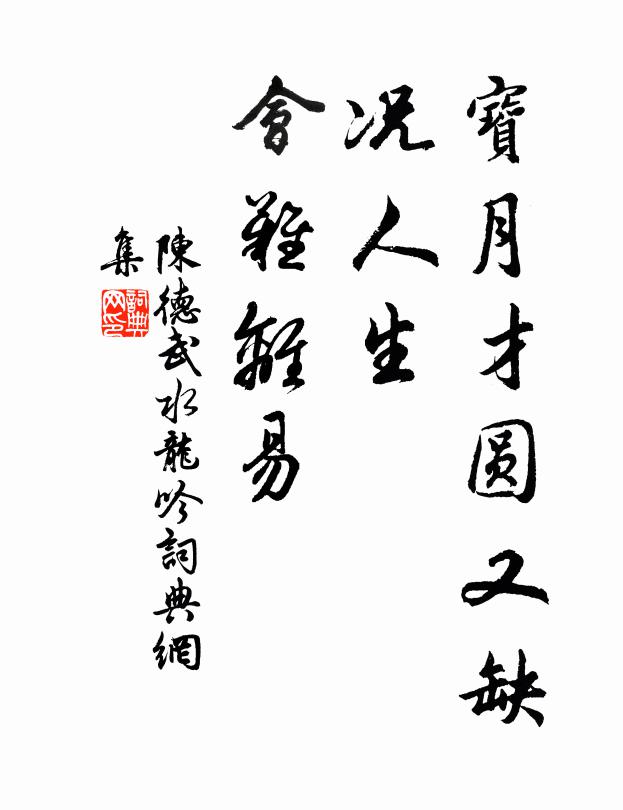 寶月才圓又缺
況人生
會難離易
陳德武水龍吟詞典網
集
詞典網印